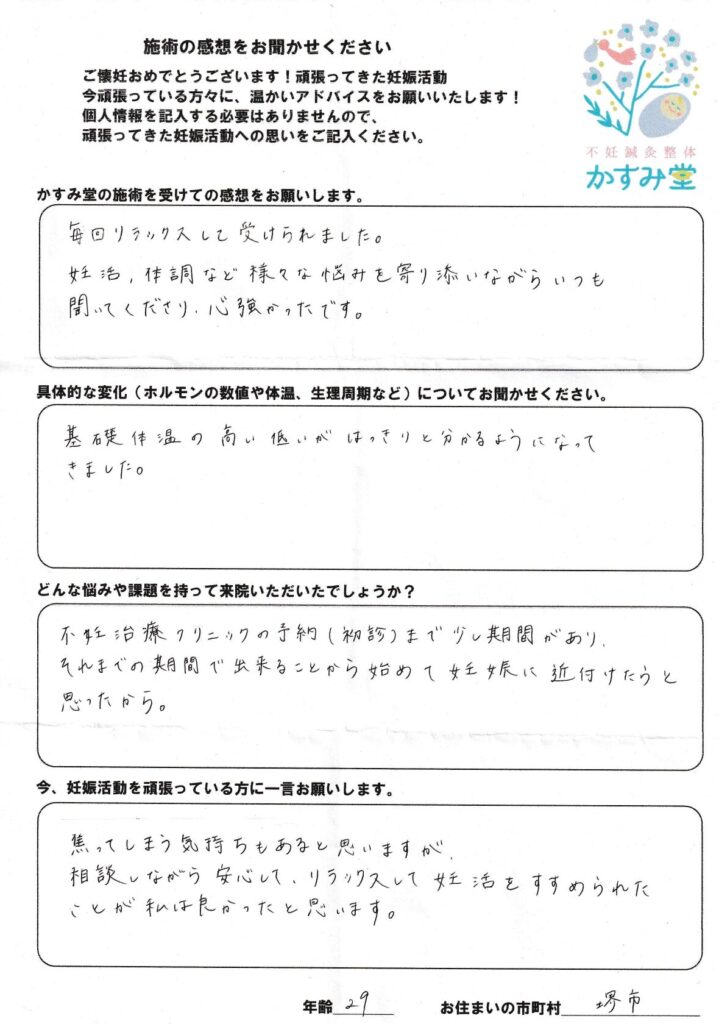 施術の感想をお聞かせください
ご懐妊おめでとうございます！頑張ってきた妊娠活動
今頑張っている方々に、温かいアドバイスをお願いいたします！
個人情報を記入する必要はありませんので、
頑張ってきた妊娠活動への思いをご記入ください。
不妊鍼灸整体
かすみ堂
かすみ堂の施術を受けての感想をお願いします。
毎回リラックスして受けられました。
妊活,体調など様々な悩みを寄り添いながらいつも
聞いてくださり、心強かったです。
具体的な変化（ホルモンの数値や体温、生理周期など）についてお聞かせください。
基礎体温の高い低いがはっきりと分かるようになって
きました。
どんな悩みや課題を持って来院いただいたでしょうか？
不妊治療クリニックの予約(初診)まで少し期間があり、
それまでの期間で出来ることから始めて妊娠に近付けたらと
思ったから。
今、妊娠活動を頑張っている方に一言お願いします。
焦ってしまう気持ちもあると思いますが、
相談しながら安心して、リラックスして妊活をすすめられた
ことが私は良かったと思います。
年齢 29 お住まいの市町村 堺市